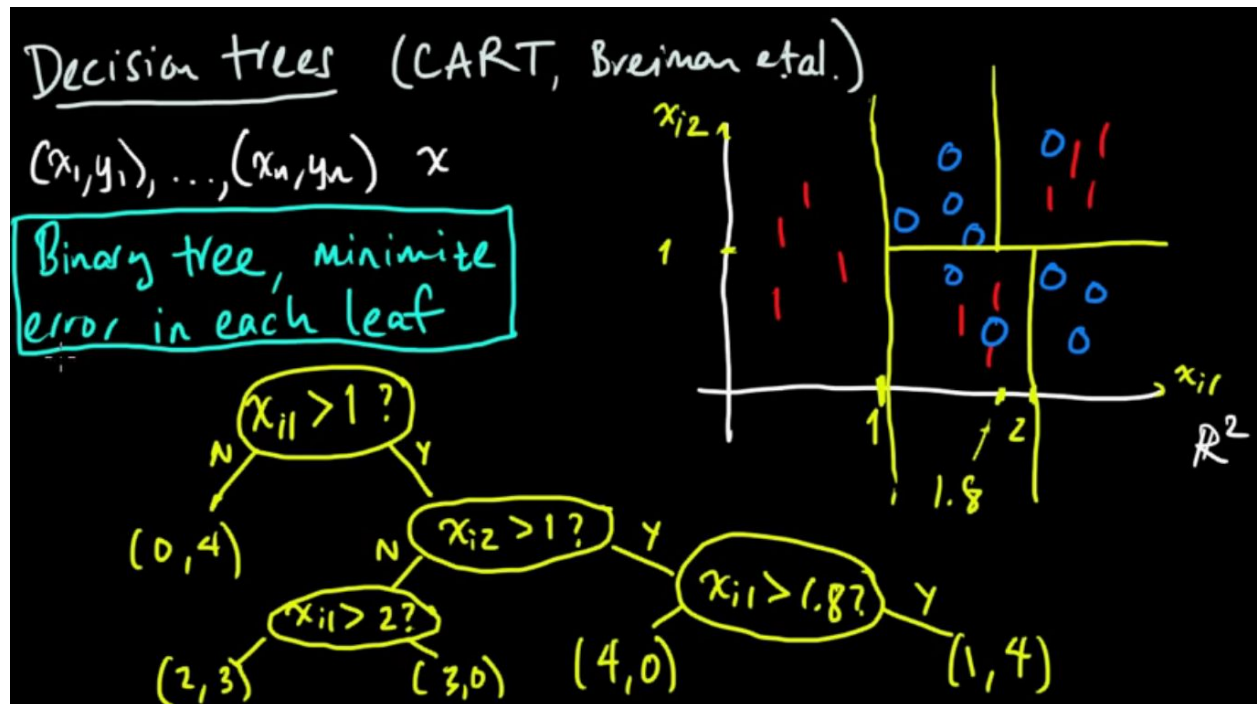 Decision trees (CART, Breiman et al.)
(x₁,y₁), ...,(xₙ,yₙ) x
Binary tree, minimize
error in each leaf
xᵢ₂
1
1
2
1.8
xᵢ₁
ℝ²
xᵢ₁ > 1 ?
N
Y
(0,4)
xᵢ₂ > 1 ?
N
Y
xᵢ₁ > 2 ?
xᵢ₁ > 1.8 ?
Y
(2,3)
(3,0)
(4,0)
(1,4)